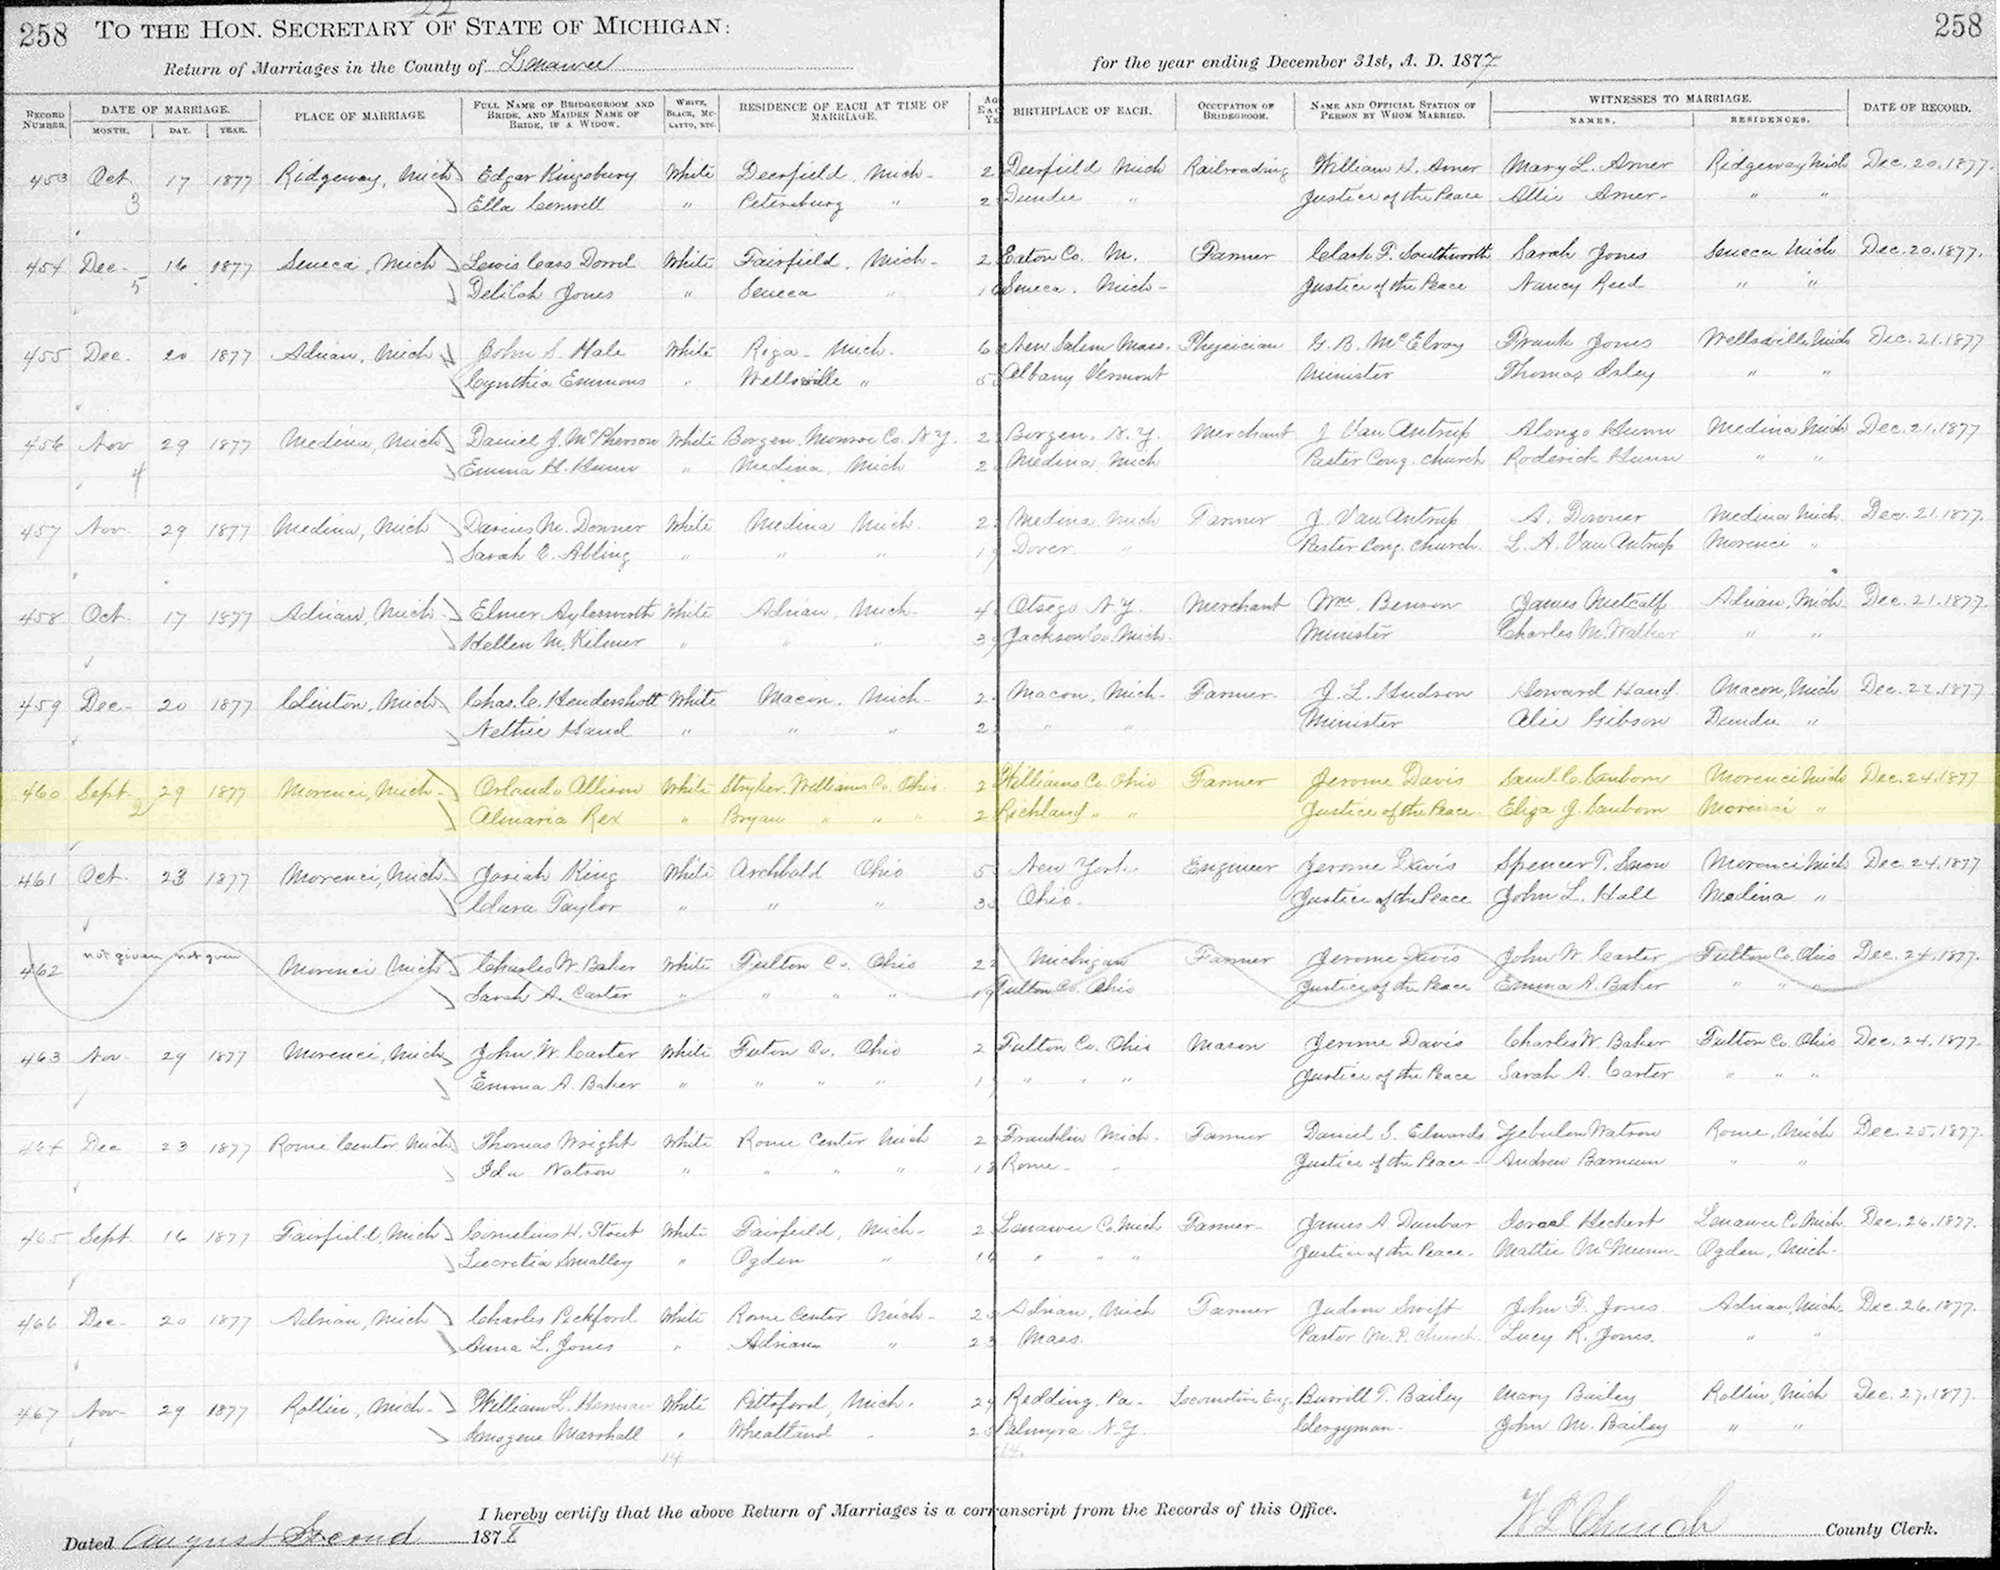 22
258 TO THE HON. SECRETARY OF STATE OF MICHIGAN: 258
Return of Marriages in the County of Lenawee for the year ending December 31st, A. D. 1877
RECORD NUMBER. DATE OF MARRIAGE. MONTH. DAY. YEAR. PLACE OF MARRIAGE. FULL NAME OF BRIDEGROOM AND BRIDE, AND MAIDEN NAME OF BRIDE, IF A WIDOW. WHITE, BLACK, MULATTO, ETC. RESIDENCE OF EACH AT TIME OF MARRIAGE. BIRTHPLACE OF EACH. OCCUPATION OF BRIDEGROOM. NAME AND OFFICIAL STATION OF PERSON BY WHOM MARRIED. WITNESSES TO MARRIAGE. NAMES. RESIDENCES. DATE OF RECORD.
453 Oct 17 1877 Ridgeway, Mich Edgar Kingsbury White Deerfield, Mich- 2 Deerfield Mich Railroading William H. Amer Mary L. Amer Ridgeway Mich Dec. 20, 1877.
3 Ella " Petersburg " 2 Dundee " Justice of the Peace Allie Amer- " "
454 Dec- 16 1877 Seneca, Mich Lewis Cass Dowd White Fairfield, Mich- 2 Eaton Co. M. Farmer Clark F. Southworth Sarah Jones Seneca Mich Dec. 20, 1877.
5 Delilah Jones " Seneca " 1 Seneca, Mich- Justice of the Peace Nancy Reed " "
455 Dec. 20 1877 Adrian, Mich John S. Hale White Riga- Mich. 6 New Salem Mass. Physician G. B. McElroy Frank Jones Wellsville, Mich Dec. 21, 1877
Cynthia Emmons " Wellsville " 5 Albany Vermont Minister Thomas Isley " "
456 Nov 29 1877 Medina, Mich Daniel J. McPherson White Bergen, Monroe Co. N.Y. 2 Bergen, N.Y. Merchant J Van Antrup Alonzo Hunn Medina Mich Dec. 21, 1877
4 Emma H. Hunn " Medina, Mich 2 Medina Mich Paster Cong. Church Roderick Hunn " "
457 Nov- 29 1877 Medina, Mich Darius M. Downer White Medina Mich. 2 Medina Mich Farmer J. Van Antrup A. Downer Medina Mich Dec. 21, 1877.
Sarah E. Abling " " " 1 Dover " Paster Cong. Church. L. A. Van Antrup Morenci "
458 Oct- 17 1877 Adrian, Mich- Elmer Aylesworth White Adrian, Mich- 4 Otsego N.Y. Merchant Wm. Benson James Metcalf Adrian, Mich Dec. 21, 1877.
Hellen M. Kilmer " " " 3 Jackson Co. Mich- Minister Charles M. Walker " "
459 Dec- 20 1877 Clinton, Mich Chas. C. Hendershott White Macon, Mich- 2 Macon, Mich- Farmer- J. L. Hudson Howard Hand Macon, Mich Dec. 22, 1877
Nettie Hand " " " 2 " " Minister Alie Gibson Dundee "
460 Sept- 29 1877 Morenci, Mich- Orlando Allison White Stryker, Williams Co, Ohio. 2 Williams Co, Ohio Farmer Jerome Davis Saml. C. Sanborn Morenci Mich Dec. 24, 1877
2 Almaria Rex " Bryan " " " 2 Richland " " Justice of the Peace Eliza J. Sanborn Morenci "
461 Oct- 23 1877 Morenci, Mich Josiah King White Archbald Ohio 5 New York. Engineer Jerome Davis Spencer T. Snow Morenci Mich Dec. 24, 1877
Clara Taylor " " " 3 Ohio. Justice of the Peace John L. Hall Medina "
462 not given not given Morenci Mich Charles W. Baker White Fulton Co. Ohio 2 Michigan Farmer Jerome Davis John W Carter Fulton Co, Ohio Dec. 24, 1877.
Sarah A. Carter " " " " 19 Fulton Co. Ohio Justice of the Peace Emma A. Baker " " "
463 Nov- 29 1877 Morenci, Mich John W. Carter White Futon Co. Ohio 2 Fulton Co. Ohio Mason Jerome Davis Charles W. Baker Fulton Co, Ohio Dec. 24, 1877.
Emma A. Baker " " " " 1 " " " Justice of the Peace Sarah A. Carter " " "
464 Dec 23 1877 Rome Center Mich Thomas Wright White Rome Center Mich 2 Franklin Mich. Farmer Daniel S. Edwards Zebulon Watson Rome, Mich Dec. 25, 1877.
Ida Watson " " " " 18 Rome- " Justice of the Peace- Andrew Barnum " "
465 Sept. 16 1877 Fairfield, Mich Cornelius H. Stout White Fairfield, Mich- 2 Lenawee Co, Mich Farmer- James A. Dunbar Israel Heckert Lenawee Co, Mich Dec. 26, 1877.
Lucretia Smalley " Ogden " 16 " " " Justice of the Peace- Mattie Ogden, Mich-
466 Dec- 20 1877 Adrian, Mich Charles Peckford White Rome Center Mich- 2 Adrian, Mich Farmer Judson Swift John F. Jones. Adrian, Mich- Dec. 26, 1877.
Anna L. Jones " Adrian " 23 Mass. Pastor M. P. Church. Lucy R. Jones. " "
467 Nov- 29 1877 Rollin, Mich- William L. Herman White Pittsford, Mich. 29 Redding, Pa- Locomotive Eng. Burrill T. Bailey Mary Bailey Rollin, Mich Dec. 27, 1877.
Imogene Marshall " Wheatland " 2 Palmyra N.Y. Clergyman- John M. Bailey " "
14 14.
I hereby certify that the above Return of Marriages is a cor anscript from the Records of this Office.
Dated August Second 1878 W L Church County Clerk.